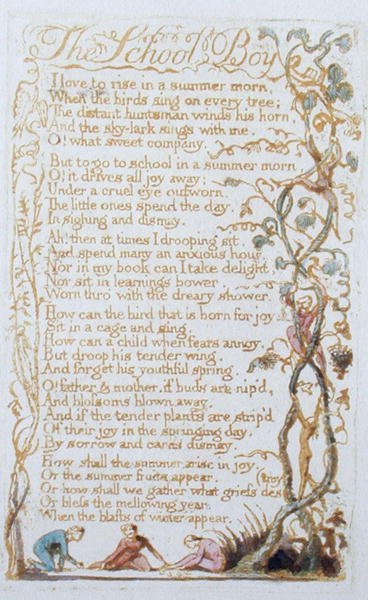 The School Boy
I love to rise in a summer morn,
When the birds sing on every tree;
The distant huntsman winds his horn,
And the sky-lark sings with me.
O! what sweet company.
But to go to school in a summer morn,
O! it drives all joy away;
Under a cruel eye outworn,
The little ones spend the day,
In sighing and dismay.
Ah! then at times I drooping sit,
And spend many an anxious hour,
Nor in my book can I take delight,
Nor sit in learnings bower,
Worn thro' with the dreary shower.
How can the bird that is born for joy,
Sit in a cage and sing.
How can a child when fears annoy,
But droop his tender wing,
And forget his youthful spring.
O! father & mother, if buds are nip'd,
And blossoms blown away,
And if the tender plants are strip'd
Of their joy in the springing day,
By sorrow and cares dismay,
How shall the summer arise in joy,
Or the summer fruits appear.
Or how shall we gather what griefs des
troy
Or bless the mellowing year,
When the blasts of winter appear.